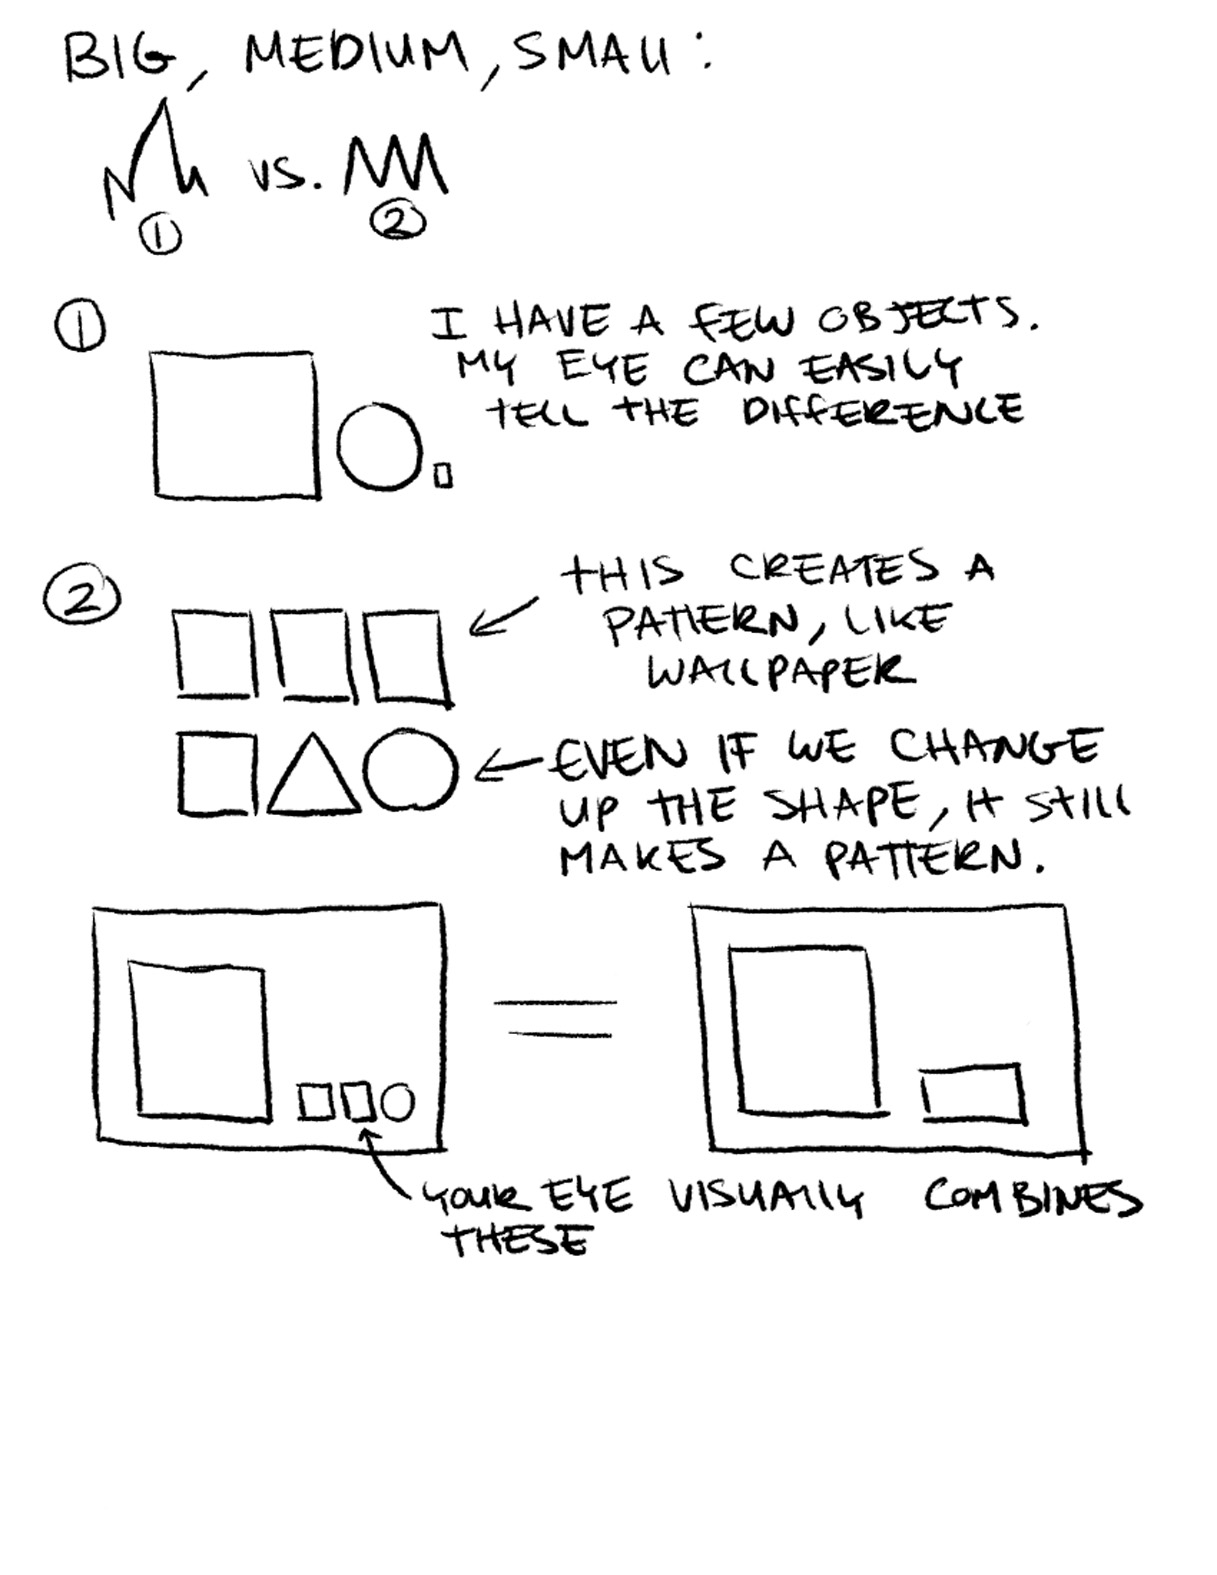 BIG, MEDIUM, SMALL:
VS.
1
2
1
I HAVE A FEW OBJECTS.
MY EYE CAN EASILY
TELL THE DIFFERENCE
2
THIS CREATES A
PATTERN, LIKE
WALLPAPER
EVEN IF WE CHANGE
UP THE SHAPE, IT STILL
MAKES A PATTERN.
YOUR EYE VISUALLY COMBINES
THESE